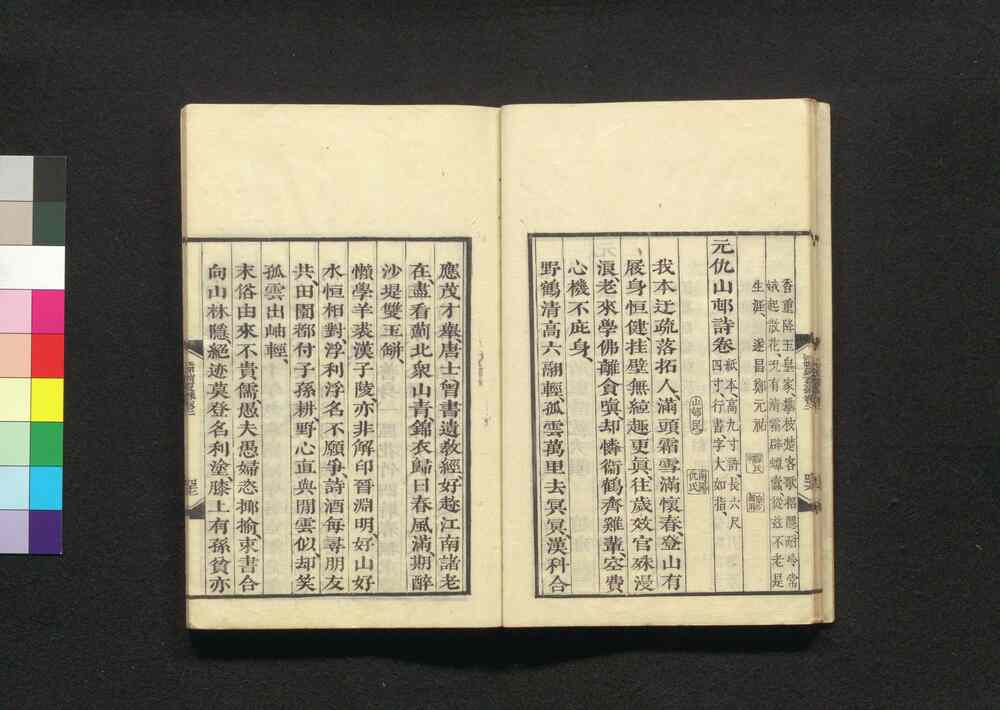 香重降玉皇家攀枝楚客歌招隱耐冷常
娥起散花 況有清霜碎蟫蠹從茲不老是
生涯、遂昌鄭元祐
元仇山邨詩卷
紙本高九寸許長六尺
四寸、行書字大如指、
我本迂疏落拓人、滿頭霜雪滿懷春、登山有
屐身恒健、挂壁無絃趣更眞、往歲效官殊漫
浪、老來學佛離貪嗔、却憐衞鶴齊雞輩、空費
心機不庇身、
山邨民
南陽
仇氏
野鶴淸高六翮輕、孤雲萬里去冥冥、漢科合
應茂才舉、唐士曾書遺敎經、好趁江南諸老
在、盡看薊北衆山靑、錦衣歸日春風滿、期醉
沙堤雙玉缾、
懶學羊裘漢子陵、亦非解印晉淵明、好山好
水恒相對、浮利浮名不願爭、詩酒每尋朋友
共、田園都付子孫耕、野心直與閒雲似、却笑
孤雲出岫輕、
末俗由來不貴儒、愚夫愚婦恣揶揄、束書合
向山林隱、絕迹莫登名利塗、膝上有孫貧亦